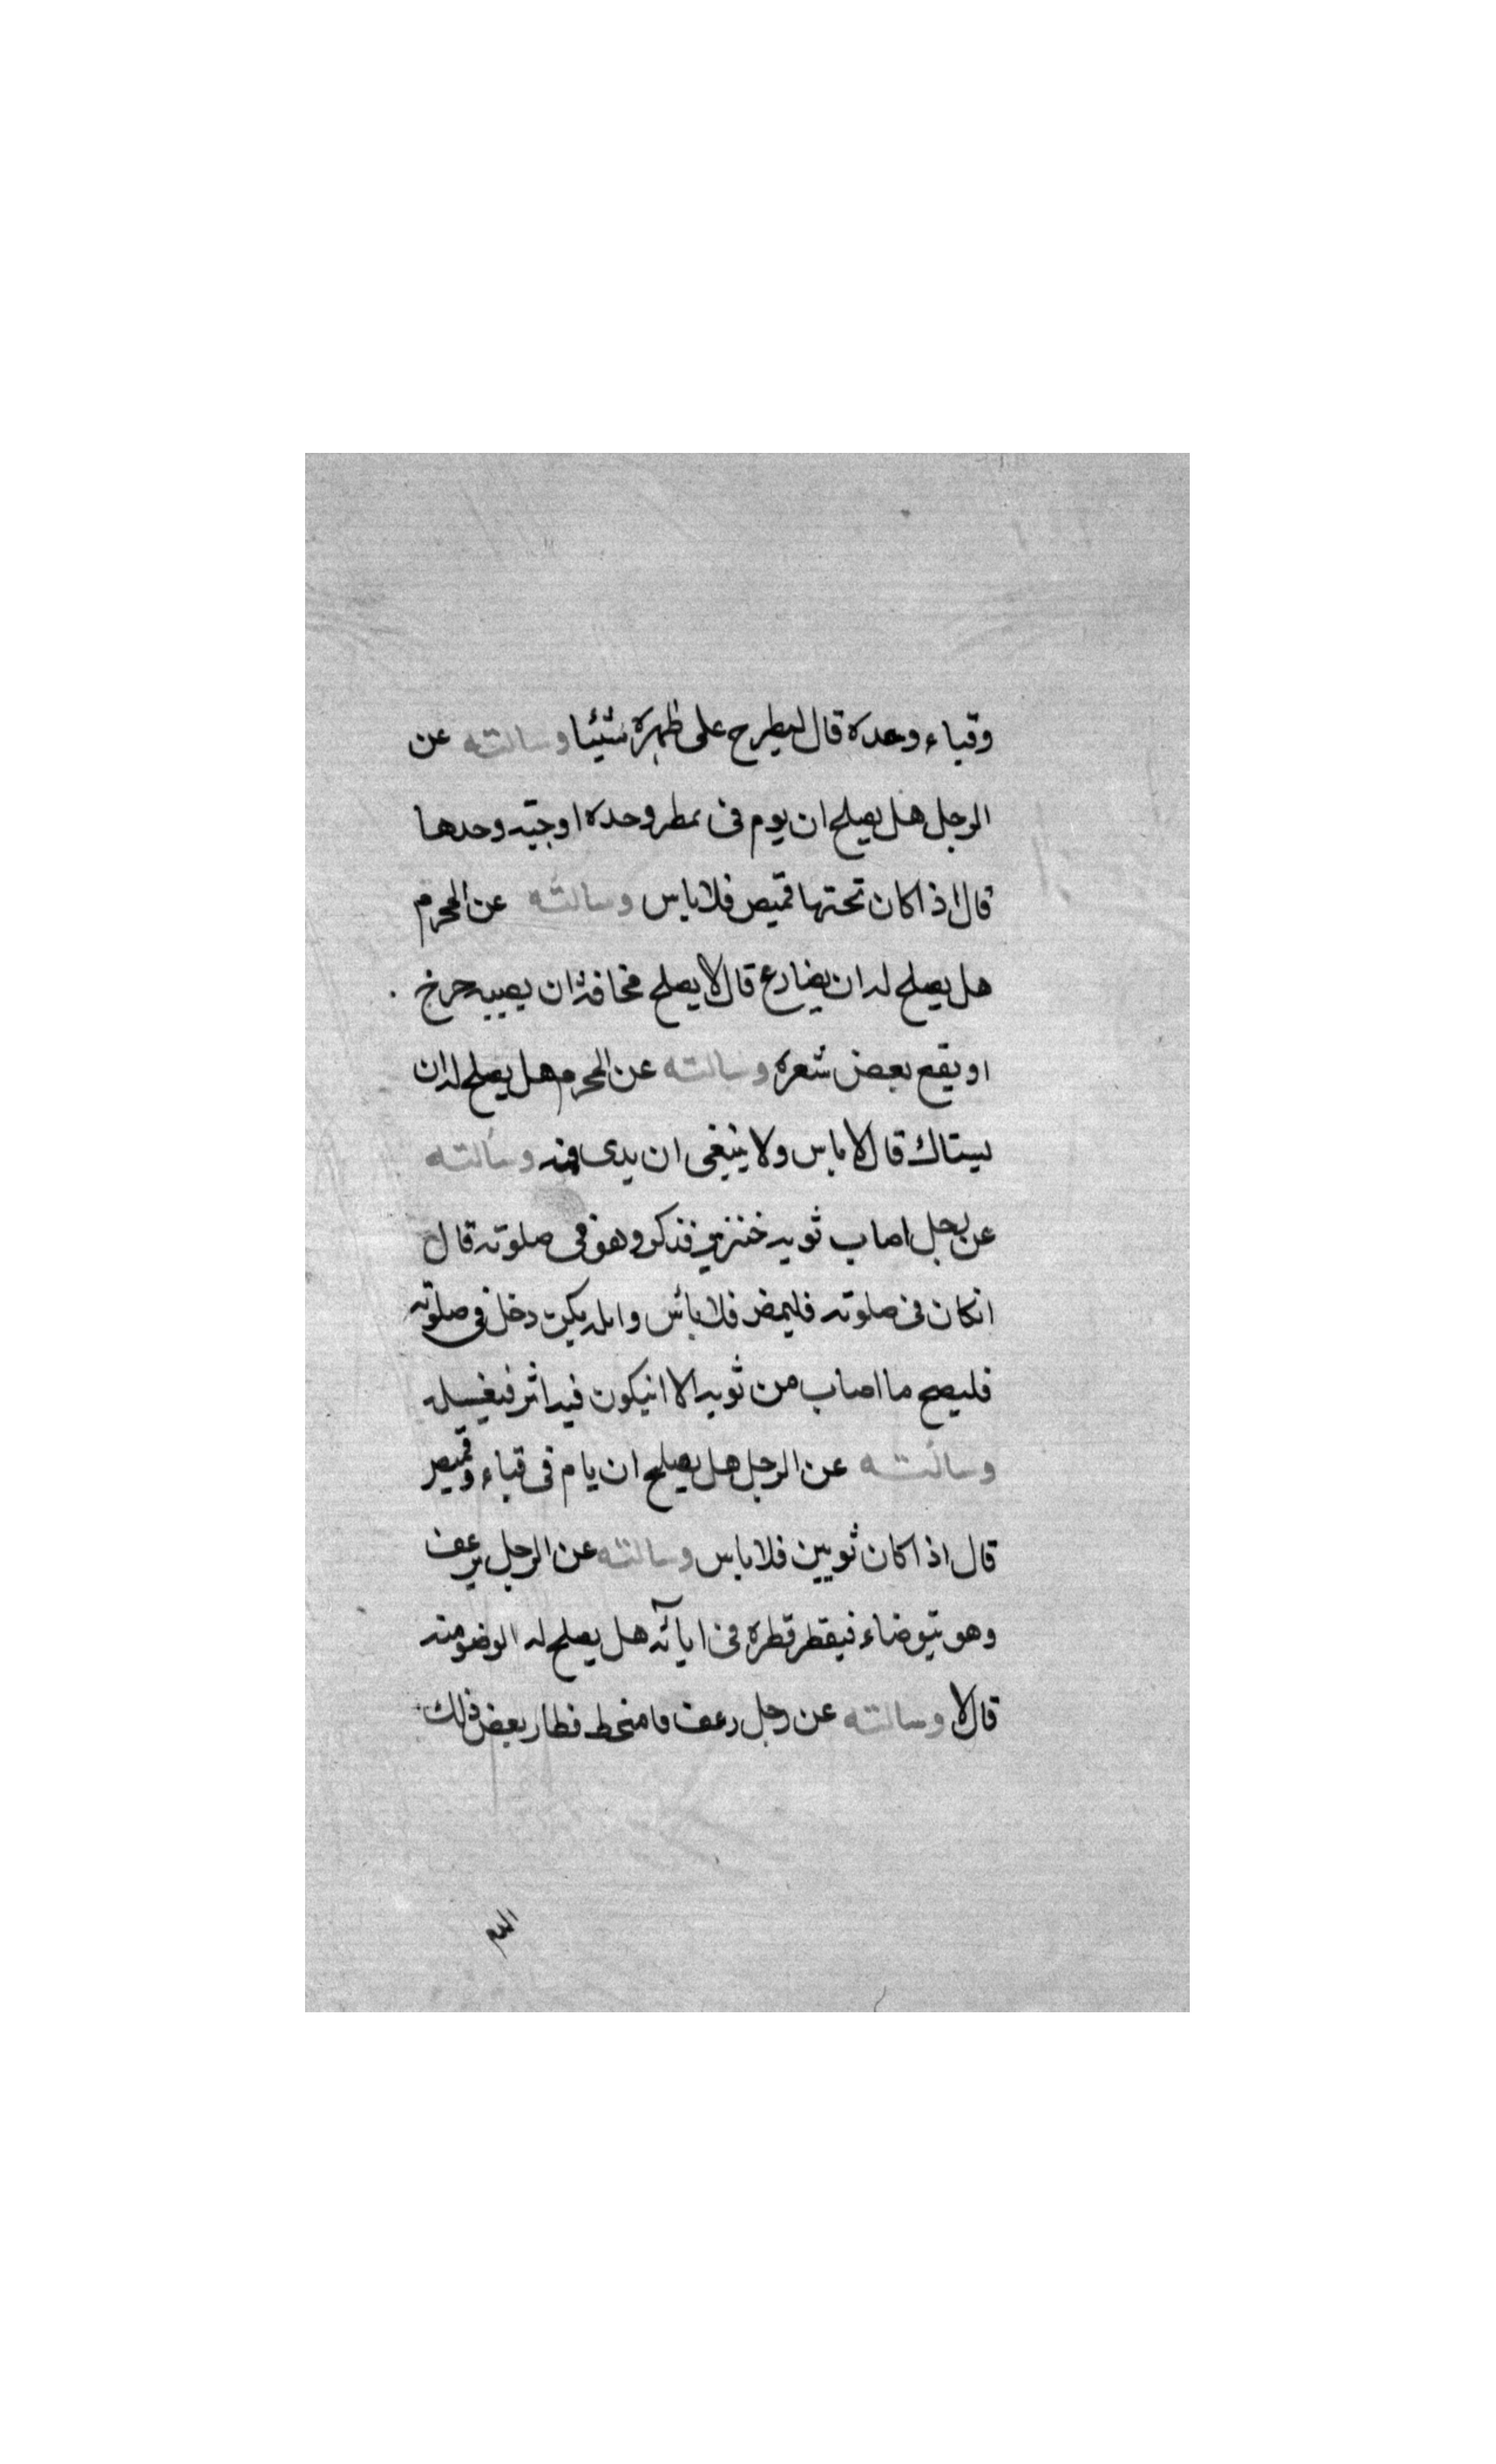 وقباء وحده قال ليطرح على ظهره شيئا وسالته عن
الرجل هل يصلح ان يوم فى ممطر وحده او جبّه وحدها
قال اذا كان تحتها قميص فلا باس وسالته عن المحرم
هل يصلح له ان يضارع قال لا يصلح مخافة ان يصيبه جرح
او يقع بعض شعره وسالته عن المحرم هل يصلح له ان
يستاك قال لا باس ولا ينبغى ان يدى فيه وسألته
عن رجل اصاب ثوبه خنزير فذكر وهو فى صلوته قال
انكان فى صلوته فليمض فلا بأس وان لم يكن دخل فى صلوته
فلينضح ما اصاب من ثوبه الا انيكون فيه اثر فيغسله
وسألته عن الرجل هل يصلح ان يام فى قباء وقميص
قال اذا كان ثوبين فلا باس وسالته عن الرجل يرعف
وهو يتوضاء فيقطر قطرة فى انائه هل يصلح له الوضو منه
قال لا وسالته عن رجل رعف فامتخط فطار بعض ذلك
الدم